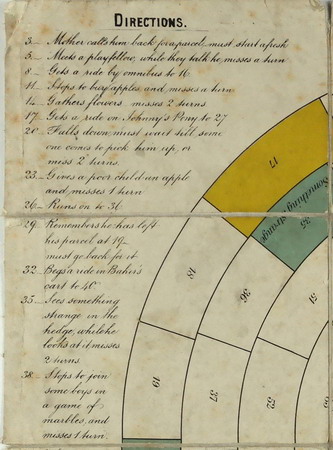 DIRECTIONS.
3_ Mother calls him back for a parcel, must start afresh
5_ Meets a playfellow, while they talk he misses a turn
8_ Gets a ride by omnibus to 16
11_ Stops to buy apples and misses a turn
14_ Gathers flowers misses 2 turns
17_ Gets a ride on Johnny's Pony to 27
20_ Falls down, must wait till some
one comes to pick him up, or
miss 2 turns.
23_ Gives a poor child an apple
and misses 1 turn
26_ Runs on to 36
29_ Remembers he has left
his parcel at 19_
must go back for it
32_ Begs a ride in Baker's
cart to 40
35_ Sees something
strange in the
hedge, while he
looks at it misses
2 turns.
38_ Stops to join
some boys in
a game of
marbles, and
misses 1 turn.
17
Something
strange
35
18
36
51
19
37
52